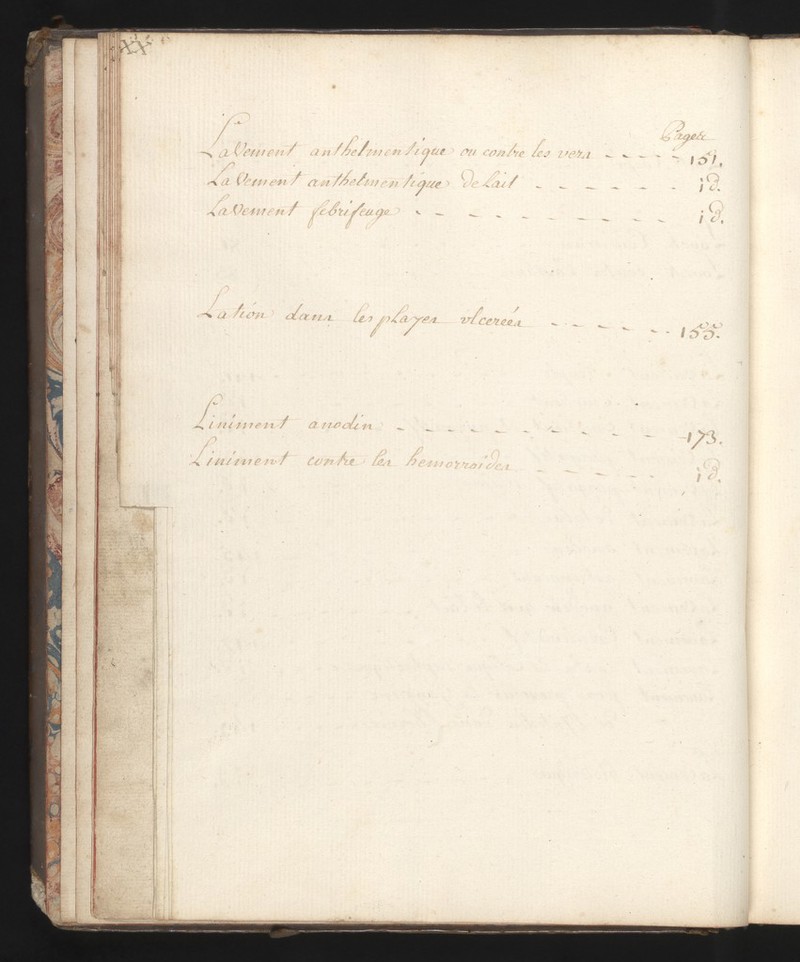 Pages
Lavement anthelmentique ou contre les vers - - - - - 151.
Lavement anthelmentique de Lait - - - - - - id.
Lavement febrifeuge - - - - - - - - - id.
Lation dans les playes ulcereés - - - - - - 155.
Liniment anodin - - - - - - - - - - - - 173.
Liniment contre les hemorroides - - - - - id.